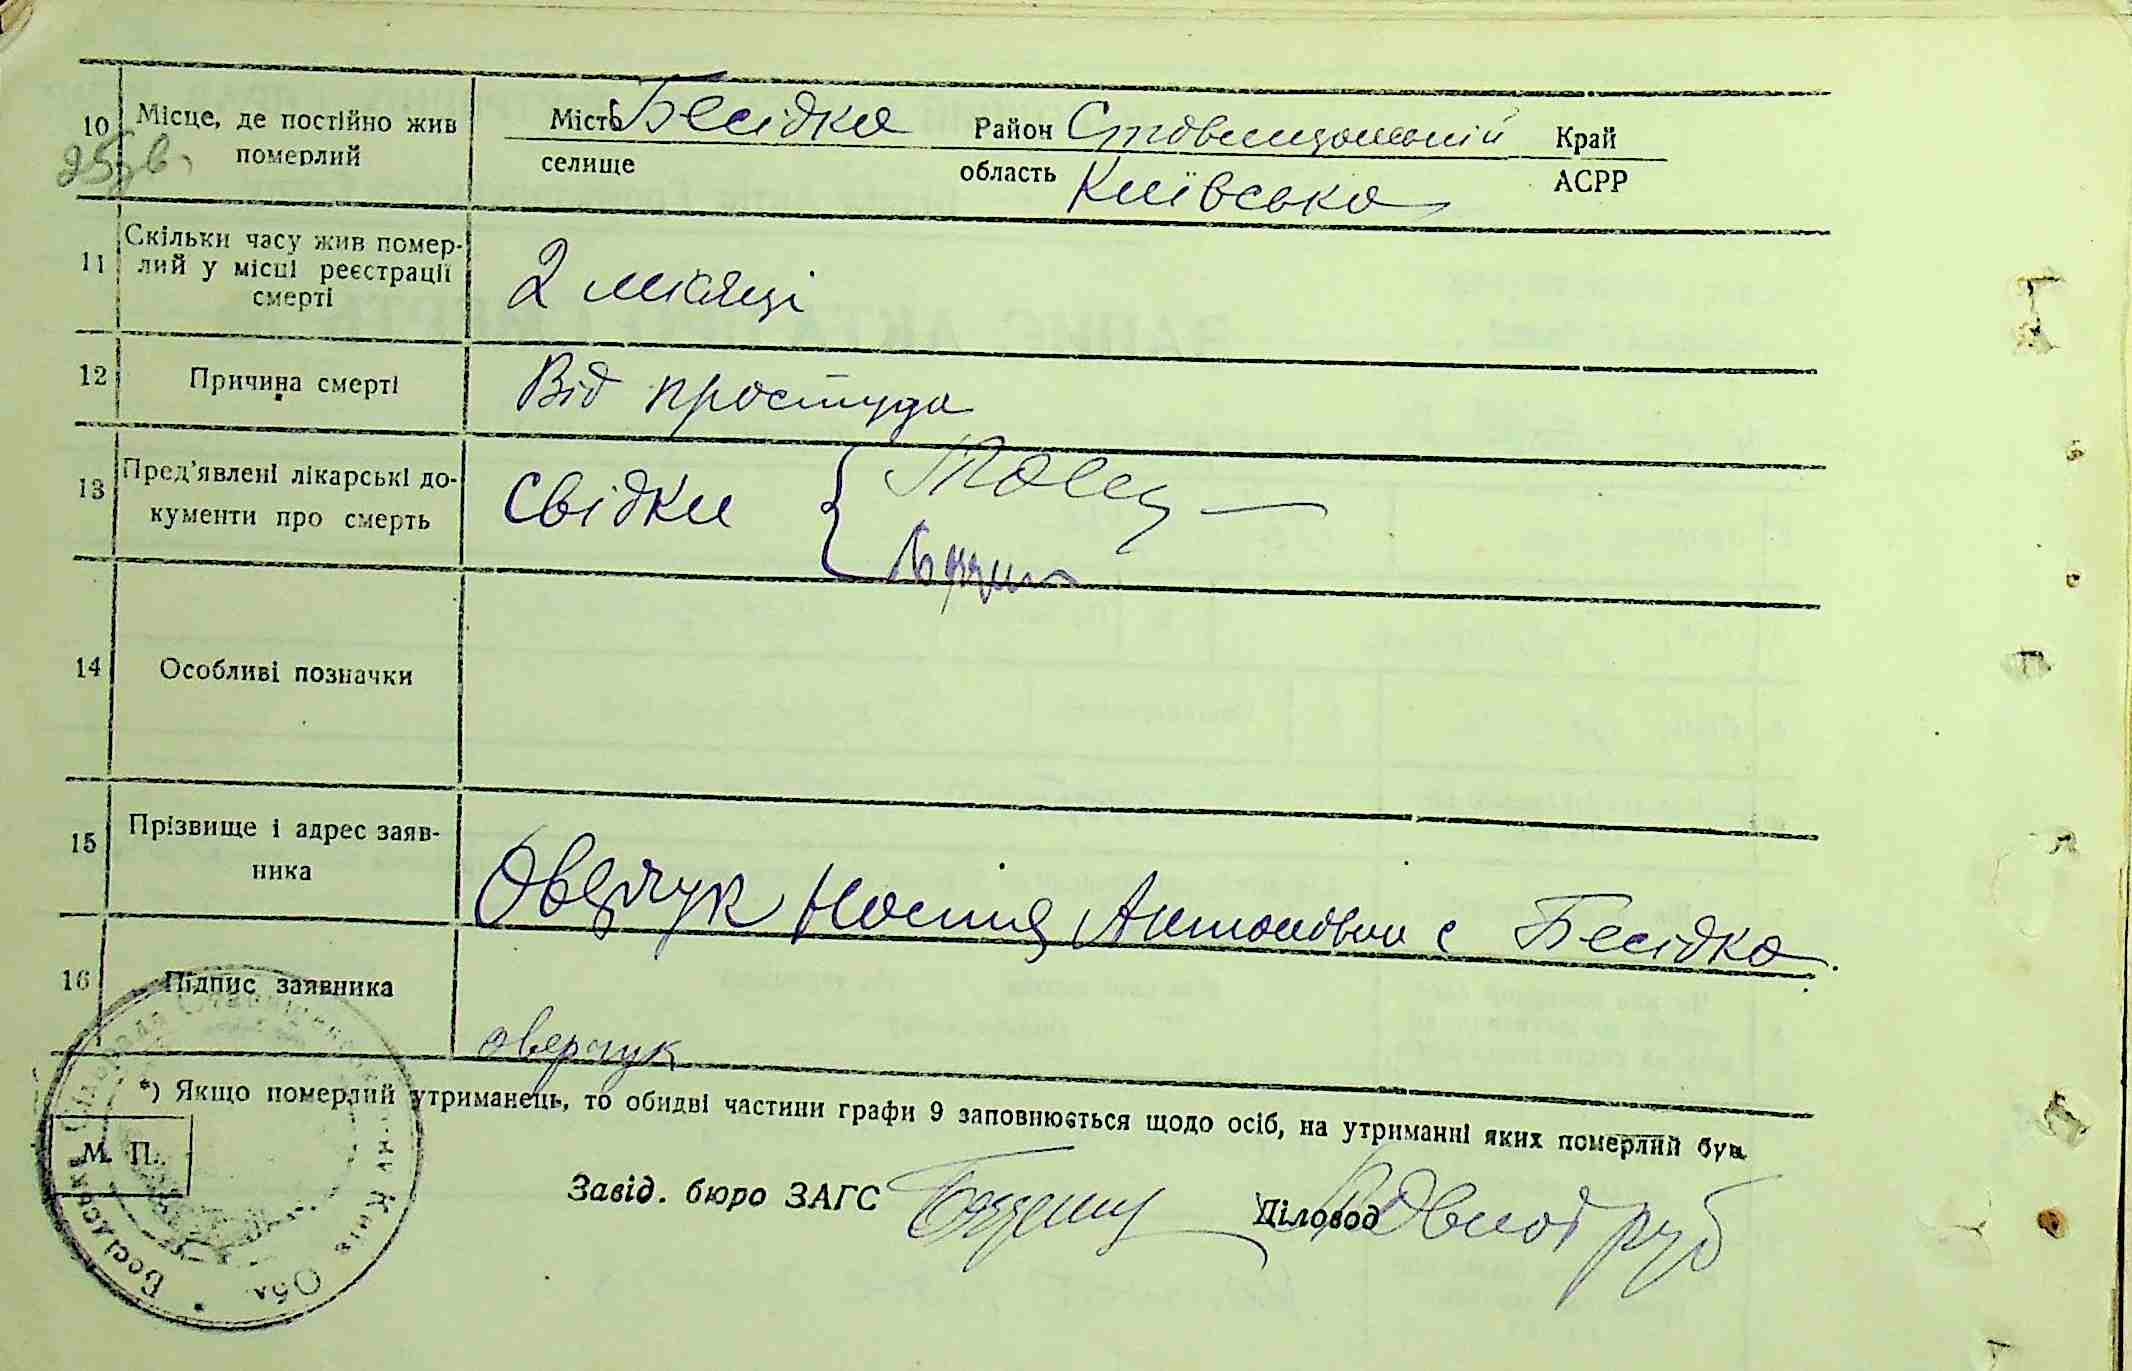 10 Місце, де постійно жив померлий Місто Бесідка Район Ставищанський Край
селище область Київська АСРР
25
11 Скільки часу жив помер-
лий у місці реєстрації
смерті
2 місяці
12 Причина смерті Від простуда
13 Пред'явлені лікарські до-
кументи про смерть
Свідки {
14 Особливі позначки
15 Прізвище і адрес заяв-
ника
Оверчук Настя Антоновна с Бесідка.
16 Підпис заявника
оверчук
*) Якщо померлий утриманець, то обидві частини графи 9 заповнюється щодо осіб, на утриманні яких померлий був.
М. П.
Завід. бюро ЗАГС Діловод
Бесідська Сільрада Київ Обл